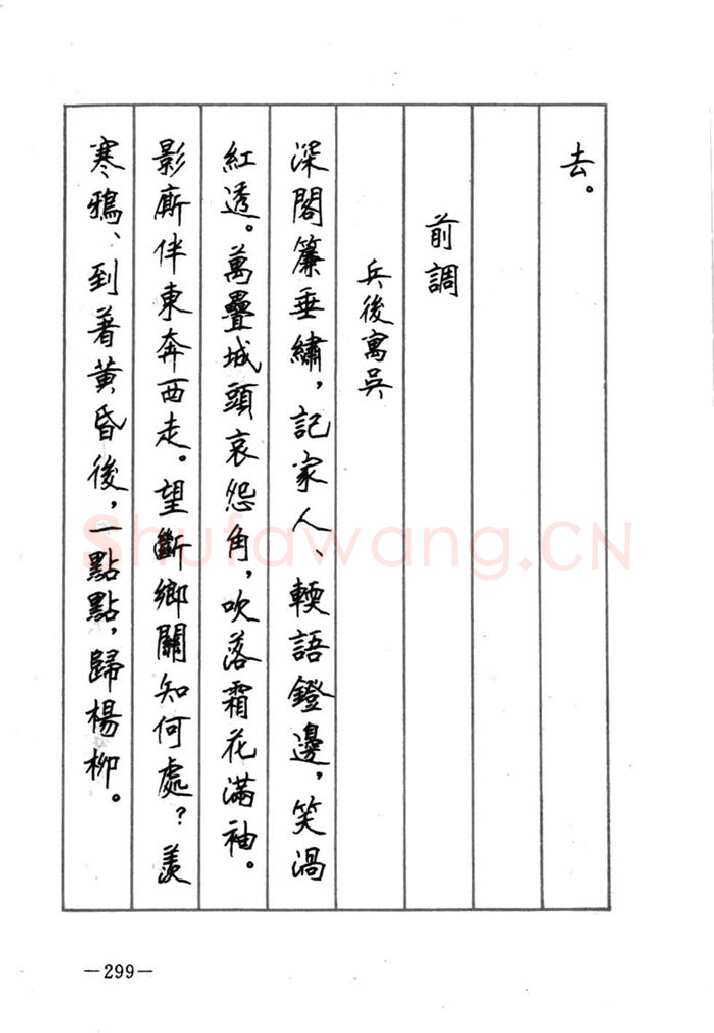 去。
前調
兵後寓吳
深閣簾垂繡，記家人、輭語鐙邊，笑渦
紅透。萬疊城頭哀怨角，吹落霜花滿袖。
影廝伴東奔西走。望斷鄉關知何處？羨
寒鴉、到著黃昏後，一點點，歸楊柳。
Shufawang.CN
—299—